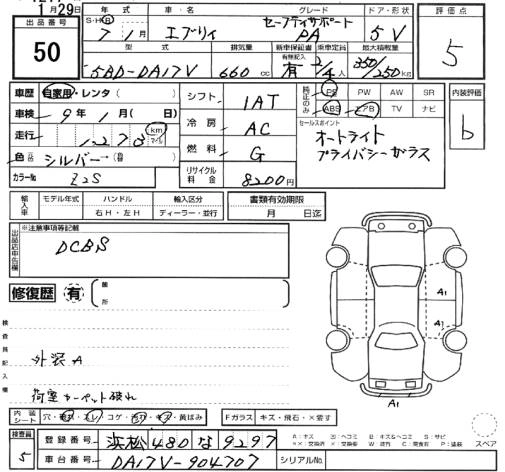 月29日
出品番号
50
年式
車・名
グレード
ドア・形状
評価点
S・H R
7 1月
エブリィ
セーフティサポート
PA
5V
5
型式
排気量
新車保証書 乗車定員
最大積載量
5BD-DA17V
660cc
有無記入
有
2/4人
350/250kg
車歴 自家用・レンタ( )
シフト
1AT
純正のみ
PS PW AW SR
ABS エアB TV ナビ
内装評価
b
車検 9年 1月( 日)
冷房
AC
セールスポイント
オートライト
プライバシーガラス
走行
km マイル
燃料
G
色 元色 シルバー→ 色替
カラーNo Z2S
リサイクル料金
8200円
輸入車
モデル年式
ハンドル
右H・左H
輸入区分
ディーラー・並行
書類有効期限
月 日迄
出品店申告欄
※注意事項等記載
DCBS
修復歴 有
箇所
検査員記入欄
外装A
荷室カーペット破れ
A1
A1
A1
内装シート
穴・コゲ・黄ばみ
Fガラス キズ・飛石・×要す
検査員
5
登録番号
浜松 480 な 9297
車台番号
DA17V-904707
シリアルNo.
スペア